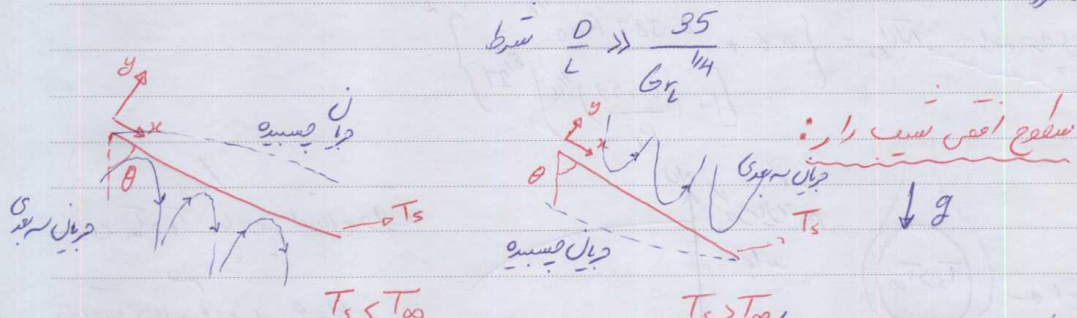 شرط D/L >> 35/Gr_L^1/4
سطوح افقی شیب دار:
y
x
θ
جریان چسبیده
جریان سه بعدی
Ts
Ts < T∞
y
x
θ
جریان سه بعدی
جریان چسبیده
Ts
Ts > T∞
g